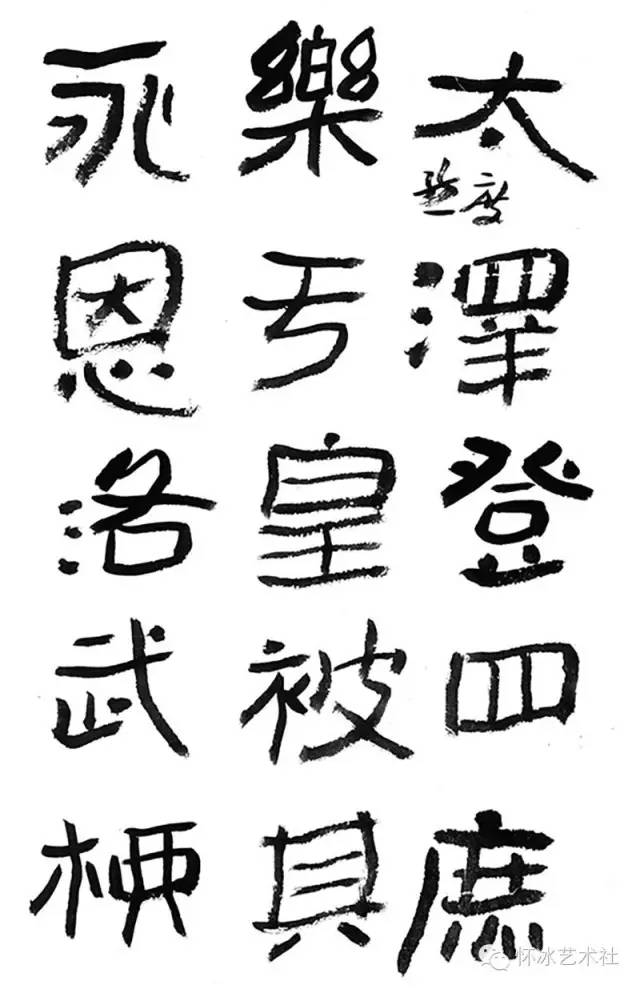 太澤登四庶
樂亏皇被其
永恩洛武
怀冰艺术社